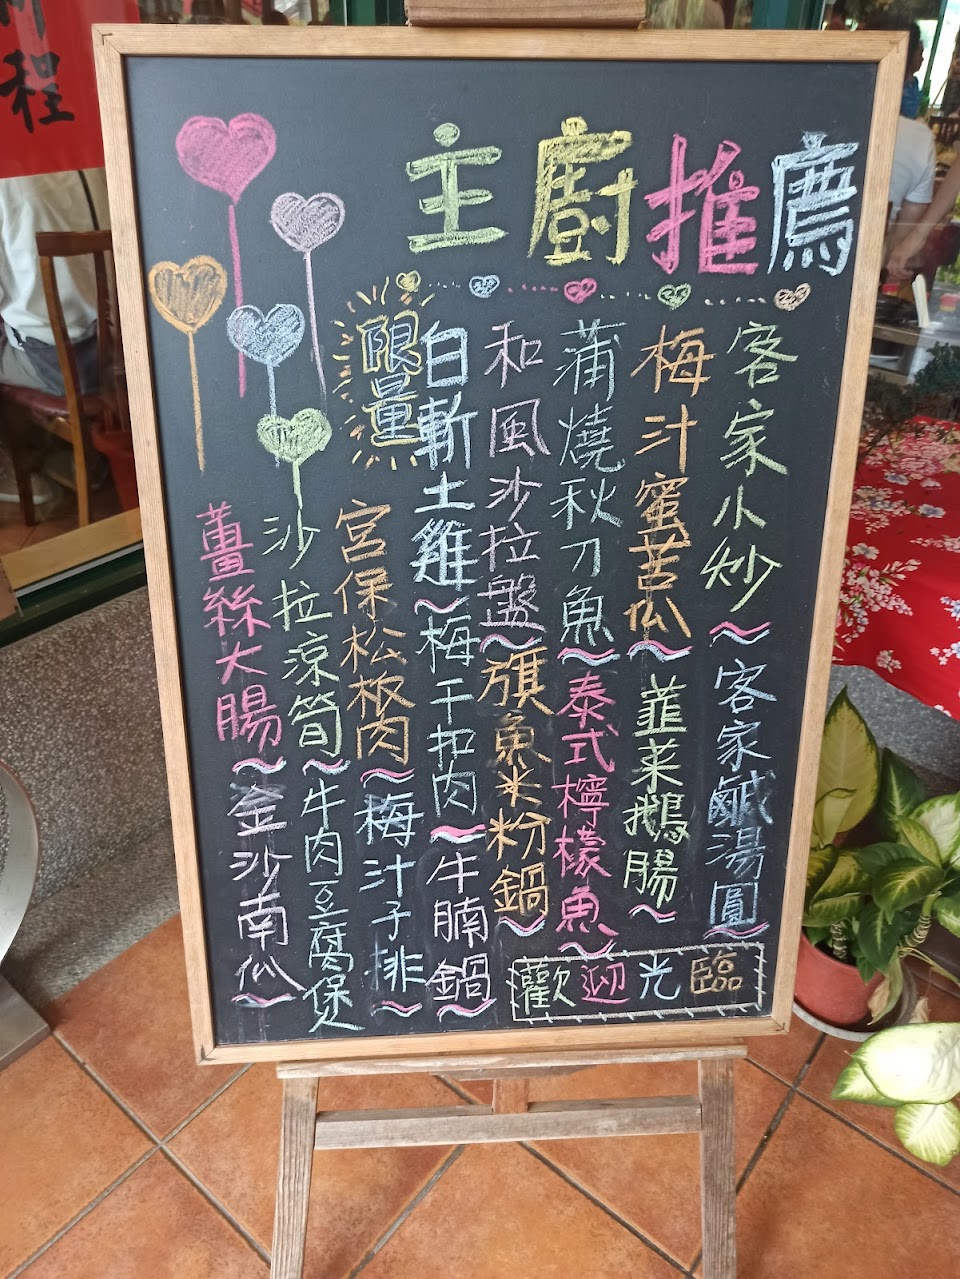 程
主廚推薦
客家小炒～客家鹹湯圓～
梅汁蜜苦瓜～韮菜鵝腸～
蒲燒秋刀魚～泰式檸檬魚～
和風沙拉盤～旗魚米粉鍋～
限量
白斬土雞～梅干扣肉～牛腩鍋～
宮保松板肉～梅汁子排～
沙拉涼筍～牛肉豆腐煲
薑絲大腸～金沙南瓜～
歡迎光臨